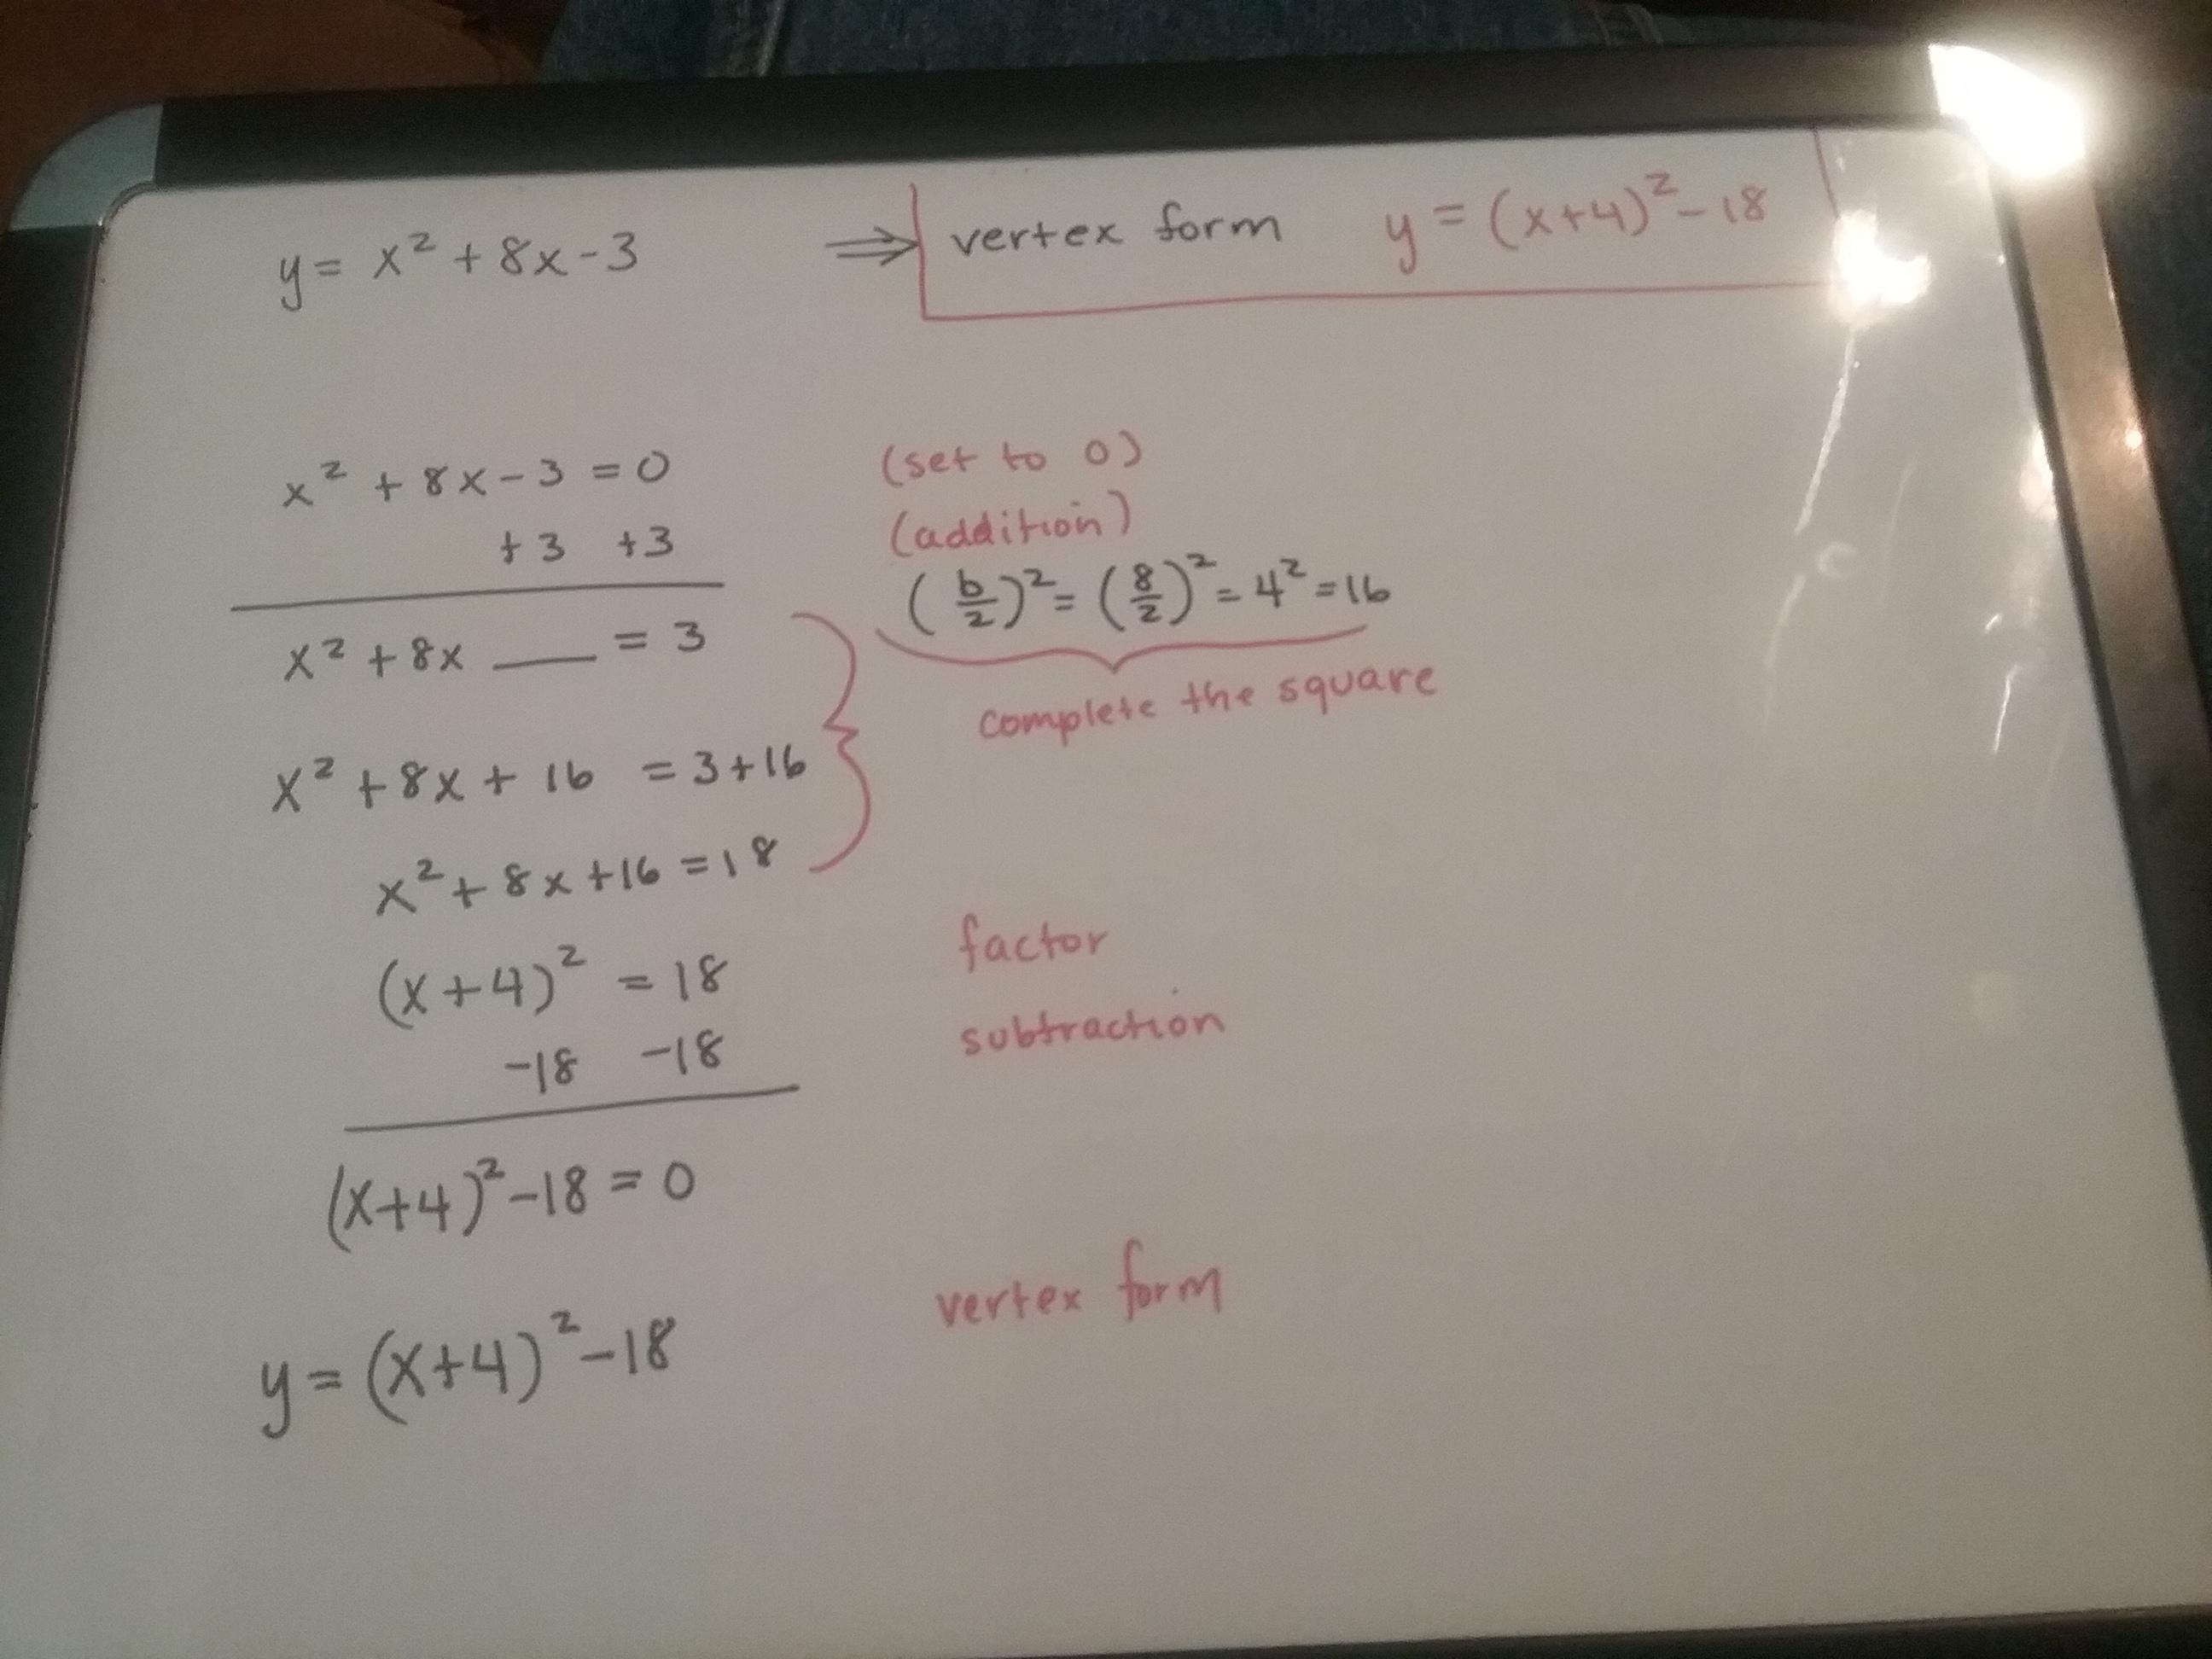 y = x² + 8x - 3 ⇒ vertex form y = (x+4)² - 18
x² + 8x - 3 = 0 (set to 0)
+3 +3 (addition)
(b/2)² = (8/2)² = 4² = 16
x² + 8x ___ = 3
complete the square
x² + 8x + 16 = 3 + 16
x² + 8x + 16 = 18
(x+4)² = 18 factor
-18 -18 subtraction
(x+4)² - 18 = 0
y = (x+4)² - 18 vertex form